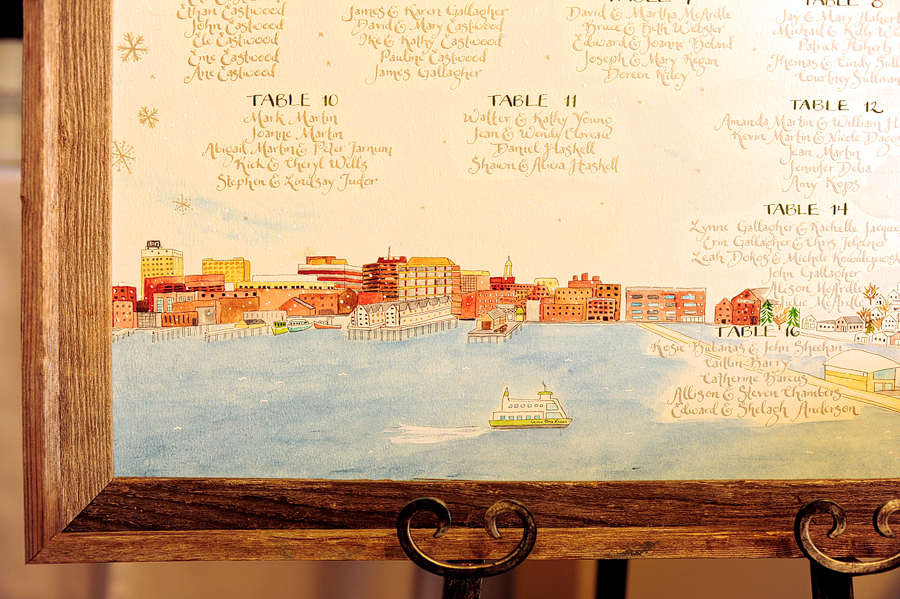 Ethan Eastwood
John Eastwood
Ele Eastwood
Eme Eastwood
Ane Eastwood
James & Karen Gallagher
David & Mary Eastwood
Ike & Kathy Eastwood
Pauline Eastwood
James Gallagher
David & Martha McArdle
Bruce & Beth Webster
Edward & Joanne Boland
Joseph & Mary Regan
Doreen Riley
TABLE 8
Jay & Mary
Michael & Kelly
Patrick Flaherty
Thomas & Cindy
Courtney Sullivan
TABLE 10
Mark Martin
Joanne Martin
Abigail Martin & Peter Farnum
Rick & Cheryl Wells
Stephen & Lindsay Tudor
TABLE 11
Walter & Kathy Young
Jean & Wendy
Daniel Haskell
Shawn & Alicia Haskell
TABLE 12
Amanda Martin & William
Kevin Martin & Nicole
Jean Martin
Jennifer Delia
Amy Kops
TABLE 14
Lynne Gallagher & Rachelle
Erin Gallagher & Chris
Leah Dokos & Michele
John Gallagher
Alison McArdle
Julie McArdle
TABLE 16
Rosie & John Sheehan
Caitlin Barry
Catherine Barcus
Allison & Steven Chambers
Edward & Shelagh Anderson